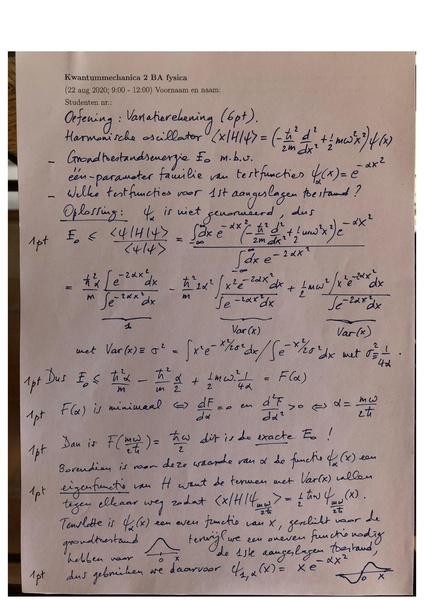 Kwantummechanica 2 BA fysica
(22 aug 2020; 9:00 - 12:00) Voornaam en naam:
Studenten nr.:
Oefening: Variatierekening (6pt).
Harmonische oscillator ⟨x|H|ψ⟩ = (-ħ²/2m d²/dx² + 1/2 mω²x²) ψ(x)
- Grondtoestandsenergie E₀ m.b.v.
één-parameter familie van testfuncties ψ_α(x) = e^{-αx²}
- Welke testfuncties voor 1st aangeslagen toestand?
Oplossing: ψ_α is niet genormeerd, dus
1pt E₀ ≤ ⟨ψ|H|ψ⟩/⟨ψ|ψ⟩ = ∫_{-∞}^{∞} dx e^{-αx²} (-ħ²/2m d²/dx² + 1/2 mω²x²) e^{-αx²} / ∫_{-∞}^{∞} dx e^{-2αx²}
= ħ²α/m ∫e^{-2αx²}dx / ∫e^{-2αx²}dx - ħ²2α²/m ∫x²e^{-2αx²}dx / ∫e^{-2αx²}dx + 1/2 mω² ∫x²e^{-2αx²}dx / ∫e^{-2αx²}dx
1 Var(x) Var(x)
met Var(x) ≡ σ² = ∫x²e^{-x²/2σ²}dx / ∫e^{-x²/2σ²}dx met σ² = 1/4α.
1pt Dus E₀ ≤ ħ²α/m - ħ²/m α/2 + 1/2 mω² 1/4α = F(α)
1pt F(α) is minimaal ⟺ dF/dα = 0 en d²F/dα² > 0 ⟺ α = mω/2ħ
1pt Dan is F(mω/2ħ) = ħω/2 dit is de exacte E₀!
Bovendien is voor deze waarde van α de functie ψ_α(x) een
1pt eigenfunctie van H want de termen met Var(x) vallen
tegen elkaar weg zodat ⟨x|H|ψ_{mω/2ħ}⟩ = 1/2 ħω ψ_{mω/2ħ}(x).
Tenslotte is ψ_α(x) een even functie van x, geschikt voor de
grondtoestand terwijl we een oneven functie nodig
hebben voor 0 x de 1ste aangeslagen toestand,
1pt dus gebruiken we daarvoor ψ_{1,α}(x) = x e^{-αx²} 0 x